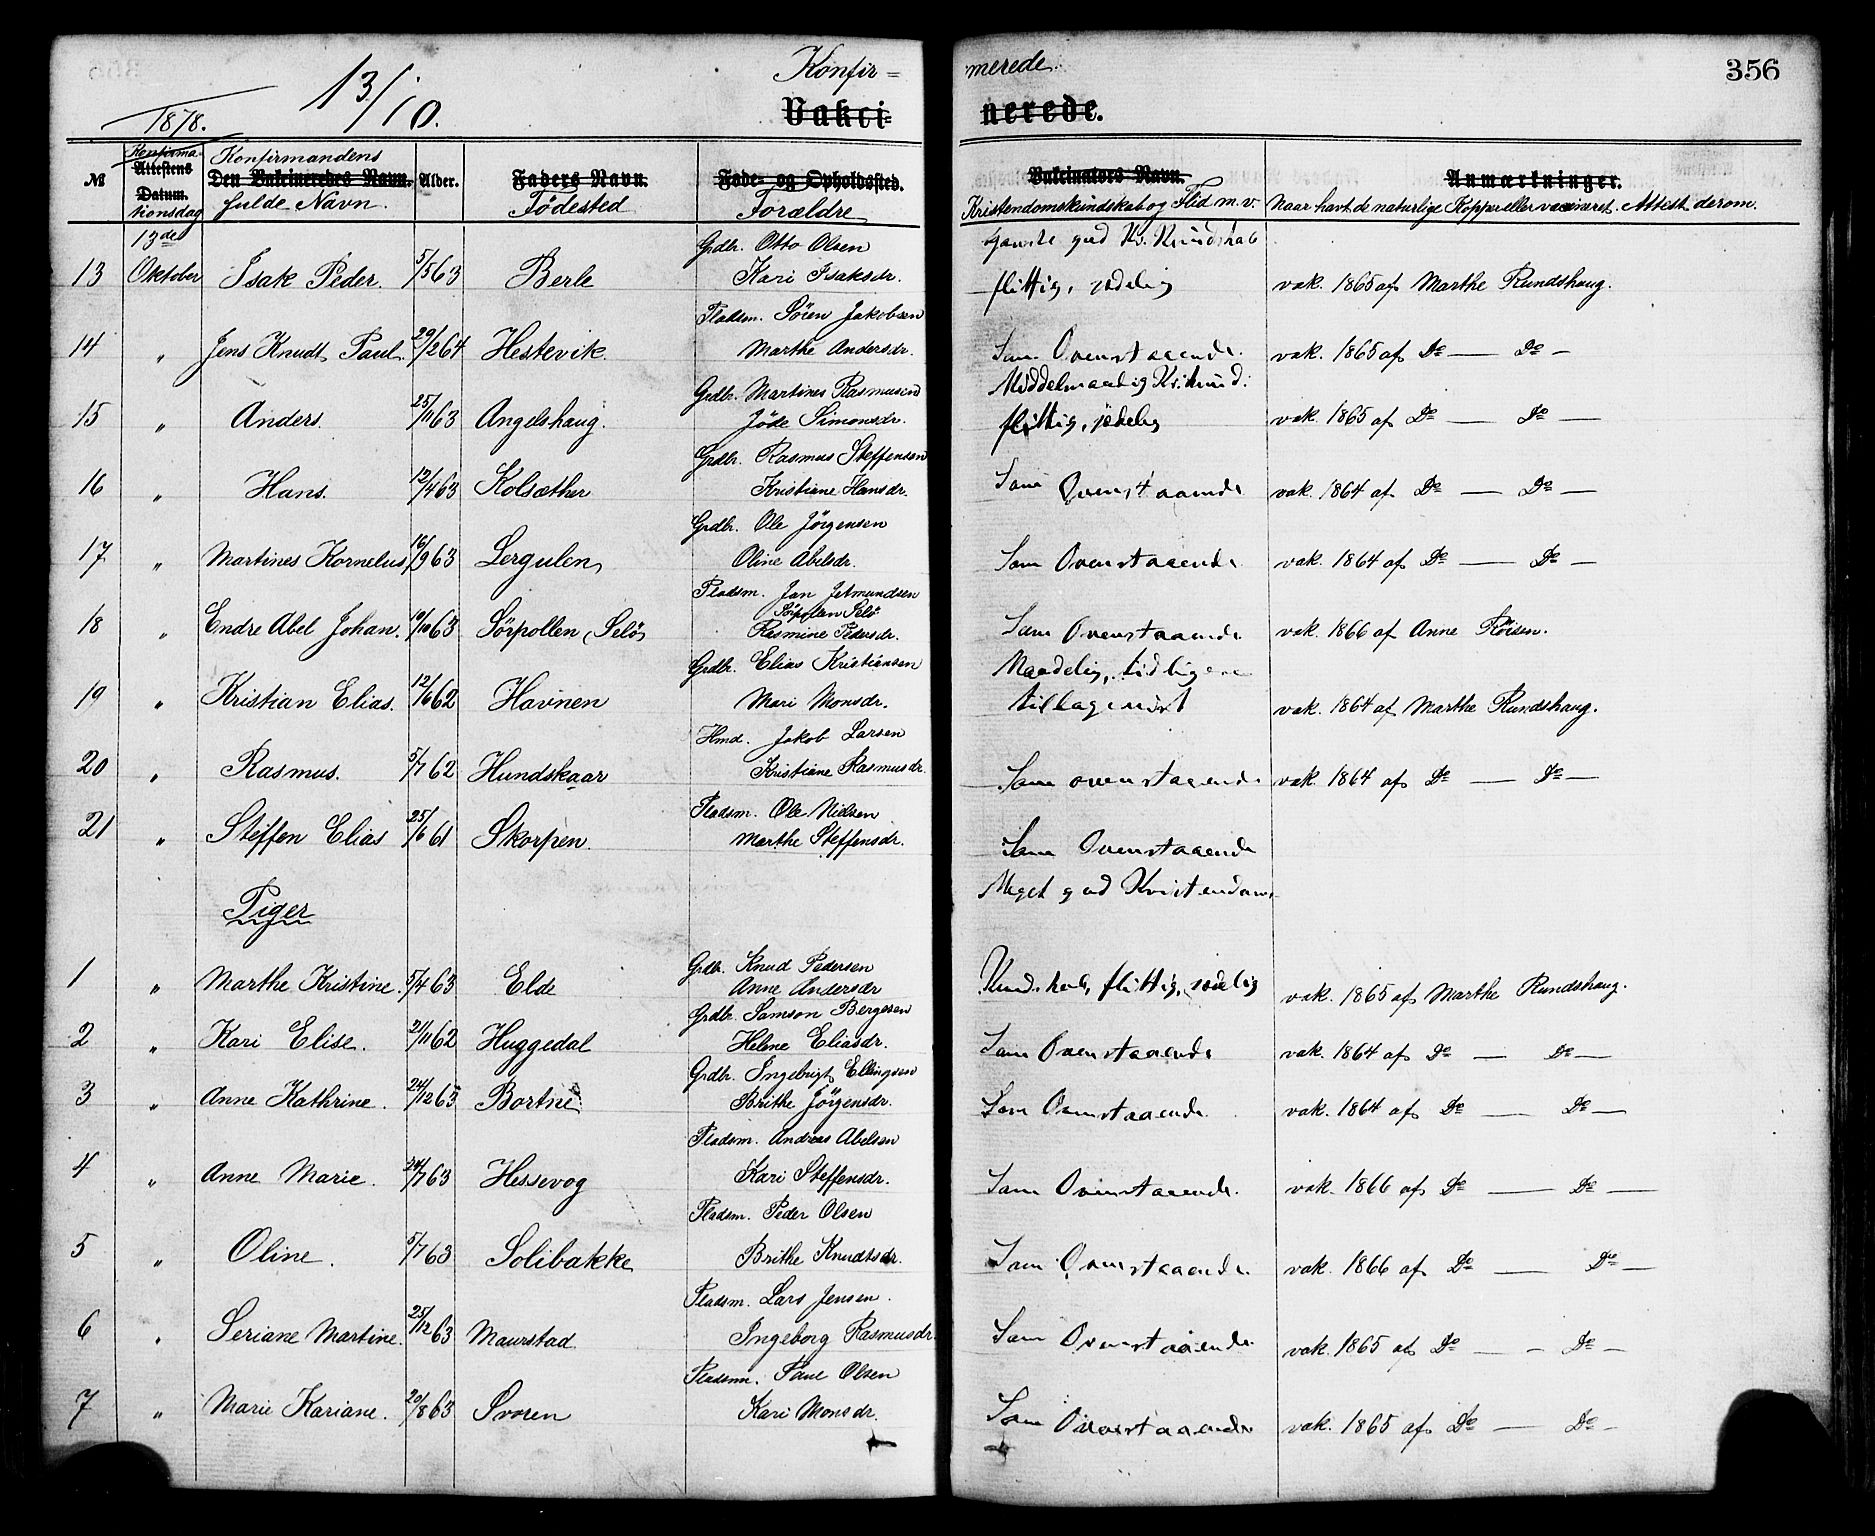 356
Konfir=
merede.
1878.
13/10.
Vakci-
nerede.
№
Konfirma-
Attestens
Datum.
tionsdag
Konfirmandens
Den Vakcineredes Navn.
fulde Navn.
Alder.
Faders Navn.
Födested
Føde- og Opholdssted.
Forældre
Vakcinators Navn.
Kristendomskundskab og Flid m. v.
Anmærkninger.
Naar havt de naturlige Kopper eller vaccineret. Attest derom.
13de Grdbr. Otto Olsen Ganske god Kr. Kundskab
13 Oktober Isak Peder. 5/5 63 Berle Kari Isaksdr. flittig, sædelig vak. 1865 af Marthe Rundshaug.
Pladsm. Sören Jakobsen
14 " Jens Knudt Paul. 29/2 64 Hestevik Marthe Andersdr. Som Ovenstaaende. vak. 1865 af Do — Do —
Grdbr. Martines Rasmusen Middelmaadig Kr. Kund.
15 " Anders. 25/11 63 Angelshaug. Jöde Simonsdr. flittig, sædelig vak. 1865 af Do — Do —
Grdbr. Rasmus Steffensen
16 " Hans. 12/4 63 Kolsæther Kristiane Hansdr. Som Ovenstaaende vak. 1864 af Do — Do —
Grdbr. Ole Jörgensen
17 " Martines Kornelus 16/9 63 Lergulen Oline Abelsdr. Som Ovenstaaende vak. 1864 af Do — Do —
Pladsm. Jan Jetmundsen
Sörpollen Selö
18 " Endre Abel Johan. 10/10 63 Sörpollen (Selö) Rasmine Pedersdr. Som Ovenstaaende vak. 1866 af Anne Röisen.
Grdbr. Elias Kristiansen Maadelig, tidligere
19 " Kristian Elias. 12/6 62 Havnen Mari Monsdr. tilbagevist vak. 1864 af Marthe Rundshaug.
Hmd. Jakob Larsen
20 " Rasmus. 5/7 62 Hundskaar Kristiane Rasmusdr. Som ovenstaaende vak. 1864 af Do — Do —
Pladsm. Ole Nielsen
21 " Steffen Elias 25/6 61 Skorpen. Marthe Steffensdr. Som Ovenstaaende
Piger Meget god Kristendoms
Grdbr. Knud Pedersen
1 " Marthe Kristine. 5/4 63 Elde Anne Andersdr Kundskab, flittig, sædelig vak. 1865 af Marthe Rundshaug.
Grdbr. Samson Bergesen
2 " Kari Elise. 21/11 62 Huggedal Helene Eliasdr. Som Ovenstaaende vak. 1864 af Do — Do —
Grdbr. Ingebrigt Ellingsen
3 " Anne Kathrine. 24/12 63 Bortne Brithe Jörgensdr. Som Ovenstaaende vak. 1864 af Do — Do —
Pladsm. Andreas Abelsen
4 " Anne Marie. 24/7 63 Hessevog Kari Steffensdr. Som Ovenstaaende. vak. 1866 af Do — Do —
Pladsm. Peder Olsen
5 " Oline. 5/7 63 Solibakke Brithe Knudtsdr. Som Ovenstaaende vak. 1866 af Do — Do —
Pladsm. Lars Jensen.
6 " Seriane Martine. 25/12 63 Maurstad Ingeborg Rasmusdr. Som Ovenstaaende vak. 1865 af Do — Do —
Pladsm. Paul Olsen
7 " Marie Kariane. 20/8 63 Svoren Kari Monsdr. Som Ovenstaaende vak. 1865 af Do — Do —